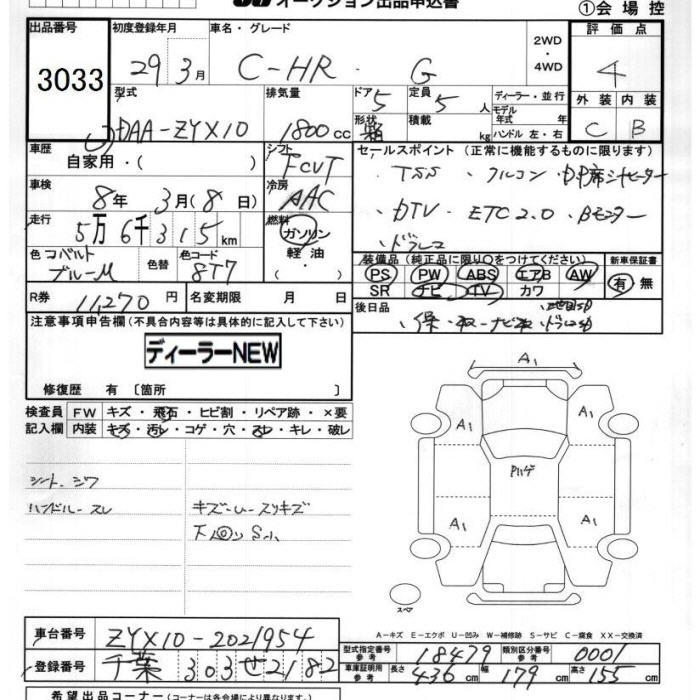 オークション出品申込書
①会場控
出品番号
3033
初度登録年月
29年 3月
車名・グレード
C-HR G
2WD
・
4WD
評価点
4
外装 内装
C B
型式
DAA-ZYX10
排気量
1800cc
ドア
5
形状
定員
5人
積載
kg
ディーラー・並行
モデル
年式 年
ハンドル 左・右
車歴
自家用・( )
シフト
FCVT
車検
8年 3月(8日)
冷房
AAC
走行
5万6千315km
燃料
ガソリン
軽油
・
色 コバルト
ブルーM
色替
色コード
8T7
R券
11,270円
名変期限 月 日
セールスポイント (正常に機能するものに限ります)
TSS フルコン
DTV ETC2.0 Bモニター
ドラレコ
装備品 (純正品に限り○をつけてください)
新車保証書
PS PW ABS エアB AW
SR ナビ TV カワ
有 無
後日品
注意事項申告欄(不具合内容等は具体的に記入して下さい)
ディーラーNEW
修復歴 有〔箇所 〕
検査員
記入欄
FW キズ・飛石・ヒビ割・リペア跡・×要
内装 キズ・汚レ・コゲ・穴・スレ・キレ・破レ
シート シワ
ハンドル スレ
A1
A1
A1
A1
A1
A1
スペア
A-キズ E-エクボ U-凹み W-補修跡 S-サビ C-腐食 XX-交換済
車台番号
ZYX10-2021954
登録番号
千葉 303 せ 2182
型式指定番号
参考
18479
類別区分番号
参考
0001
車庫証明用
参考
長さ 436cm 幅 179cm 高さ 155cm
希望出品コーナー(コーナーは各会場により異なります。)